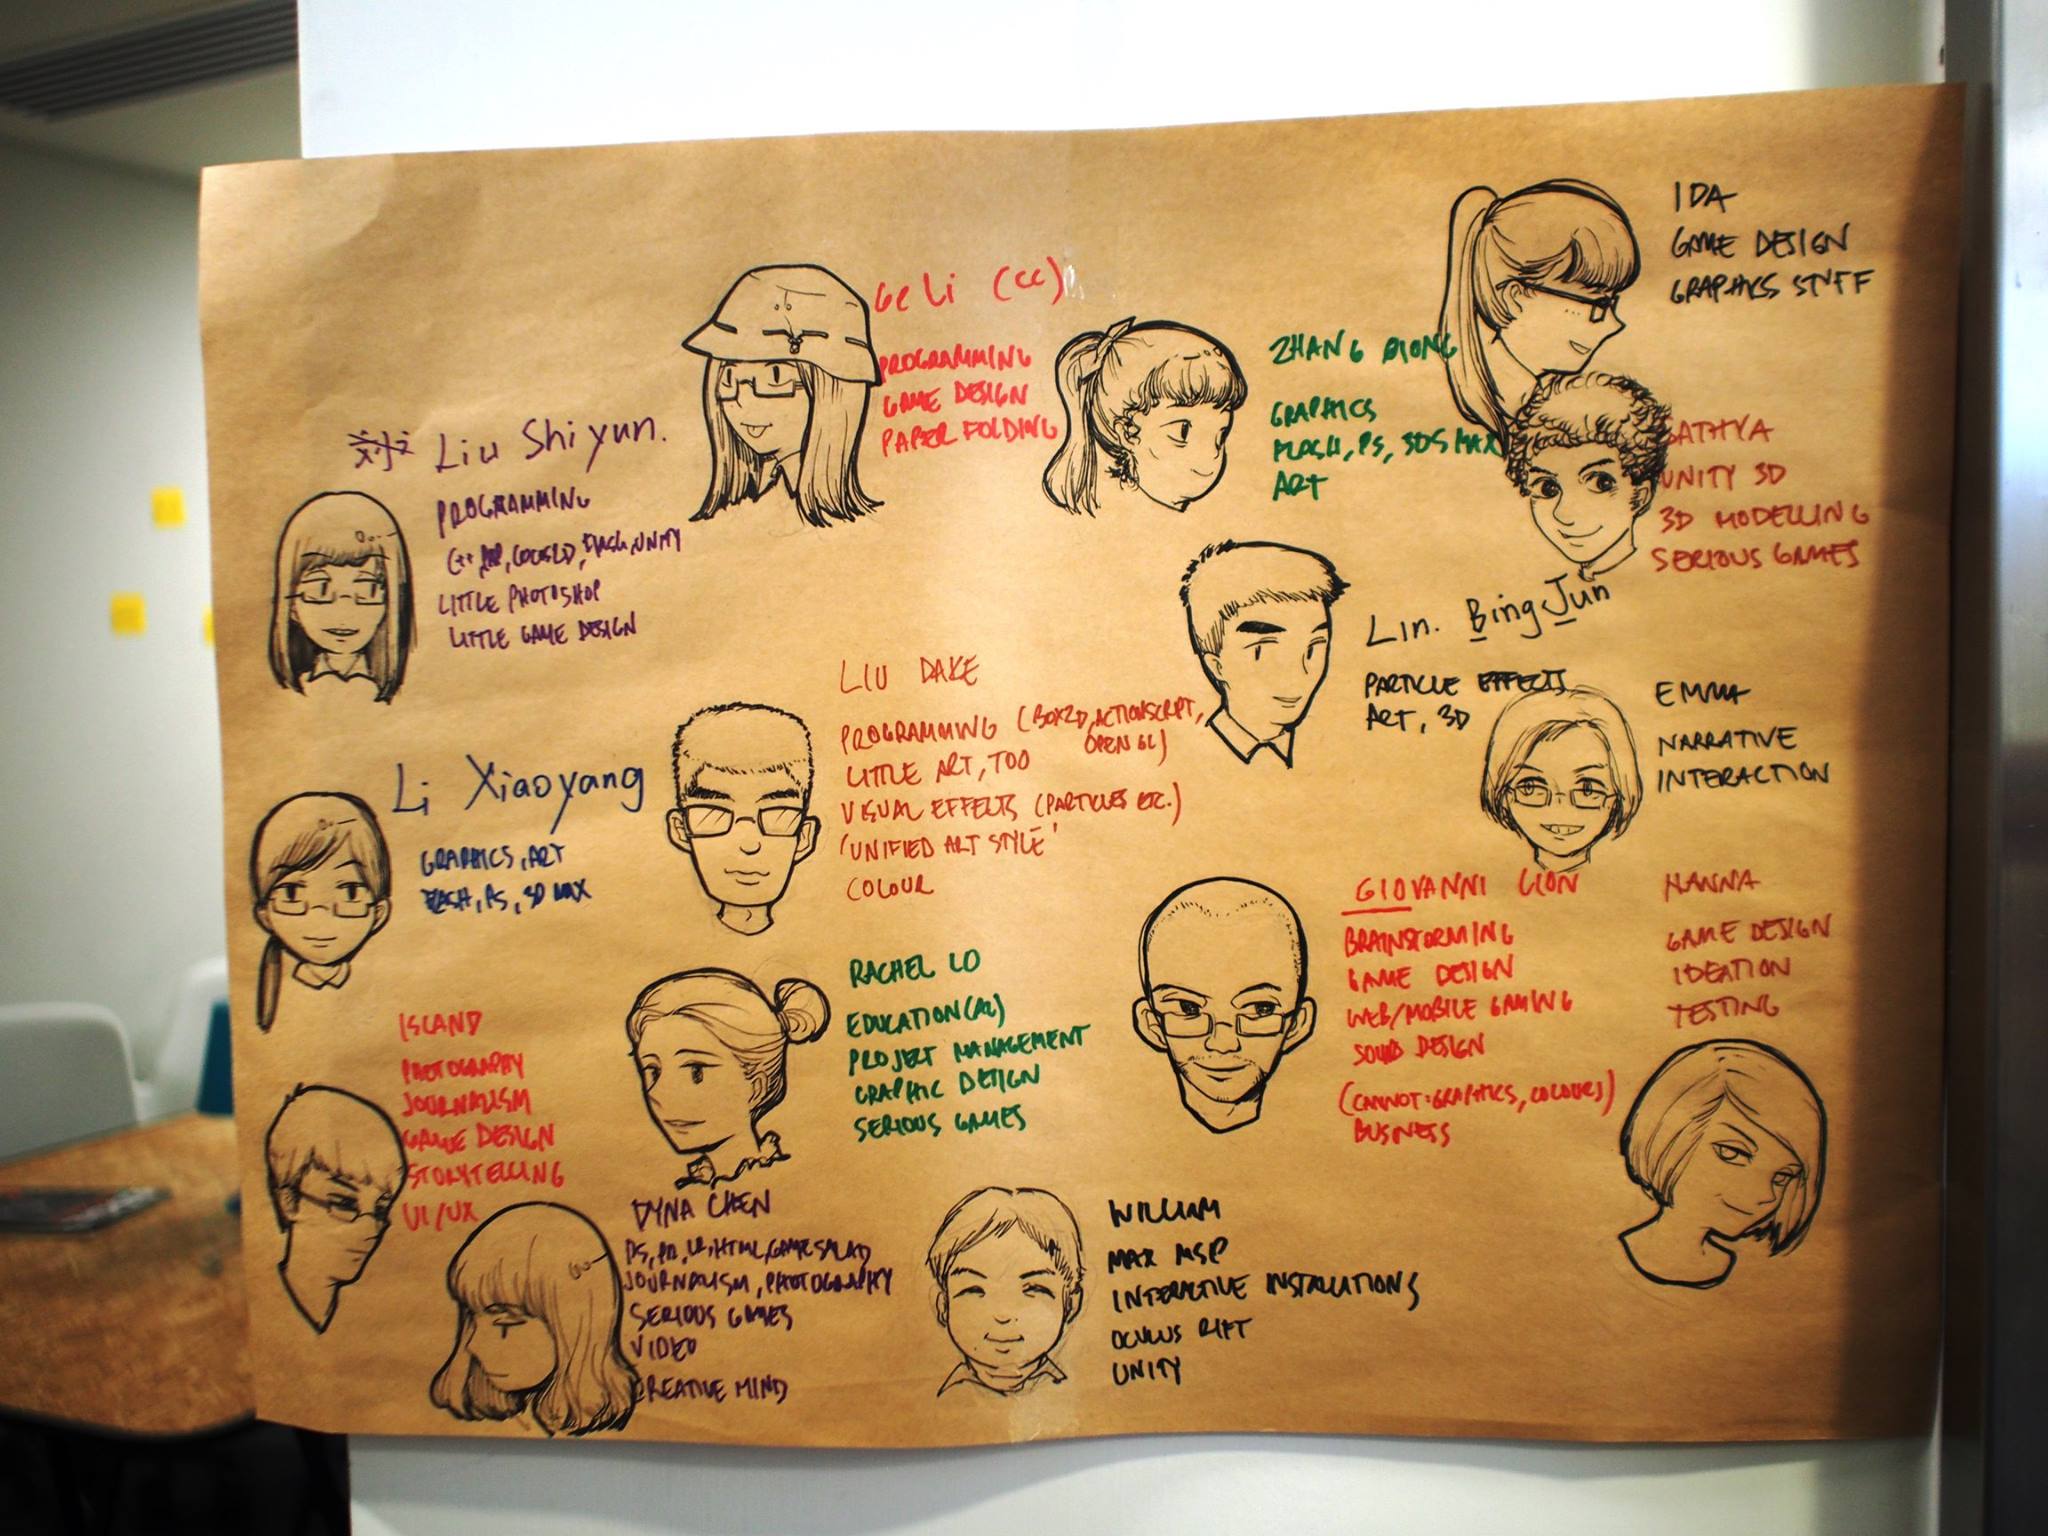 Liu Shiyun.
PROGRAMMING
C++, COCOS2D, FLASH, UNITY
LITTLE PHOTOSHOP
LITTLE GAME DESIGN
Ge Li (CC)
PROGRAMMING
GAME DESIGN
PAPER FOLDING
ZHANG QIONG
GRAPHICS
FLASH, PS, 3DS MAX
ART
IDA
GAME DESIGN
GRAPHICS STUFF
SATHYA
UNITY 3D
3D MODELLING
SERIOUS GAMES
Lin. BingJun
PARTICLE EFFECTS
ART, 3D
EMMA
NARRATIVE
INTERACTION
Li Xiaoyang
GRAPHICS, ART
FLASH, PS, 3D MAX
LIU DAKE
PROGRAMMING (BOX2D, ACTIONSCRIPT,
OPEN GL)
LITTLE ART, TOO
VISUAL EFFECTS (PARTICLES ETC.)
'UNIFIED ART STYLE'
COLOUR
GIOVANNI LION
BRAINSTORMING
GAME DESIGN
WEB/MOBILE GAMING
SOUND DESIGN
(CANNOT: GRAPHICS, COLOURS)
BUSINESS
HANNA
GAME DESIGN
IDEATION
TESTING
ISLAND
PHOTOGRAPHY
JOURNALISM
GAME DESIGN
STORYTELLING
UI/UX
RACHEL LO
EDUCATION
PROJECT MANAGEMENT
GRAPHIC DESIGN
SERIOUS GAMES
DYNA CHEN
PS, PR, HTML, GAMESALAD
JOURNALISM, PHOTOGRAPHY
SERIOUS GAMES
VIDEO
CREATIVE MIND
WILLIAM
MAX MSP
INTERACTIVE INSTALLATIONS
OCULUS RIFT
UNITY